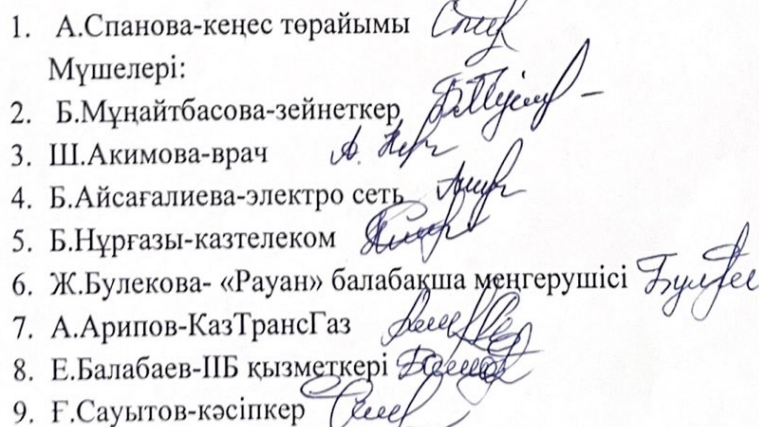 1. А.Спанова-кеңес төрайымы
Мүшелері:
2. Б.Мұңайтбасова-зейнеткер
3. Ш.Акимова-врач
4. Б.Айсағалиева-электро сеть
5. Б.Нұрғазы-казтелеком
6. Ж.Булекова- «Рауан» балабақша меңгерушісі
7. А.Арипов-КазТрансГаз
8. Е.Балабаев-ІІБ қызметкері
9. Ғ.Сауытов-кәсіпкер